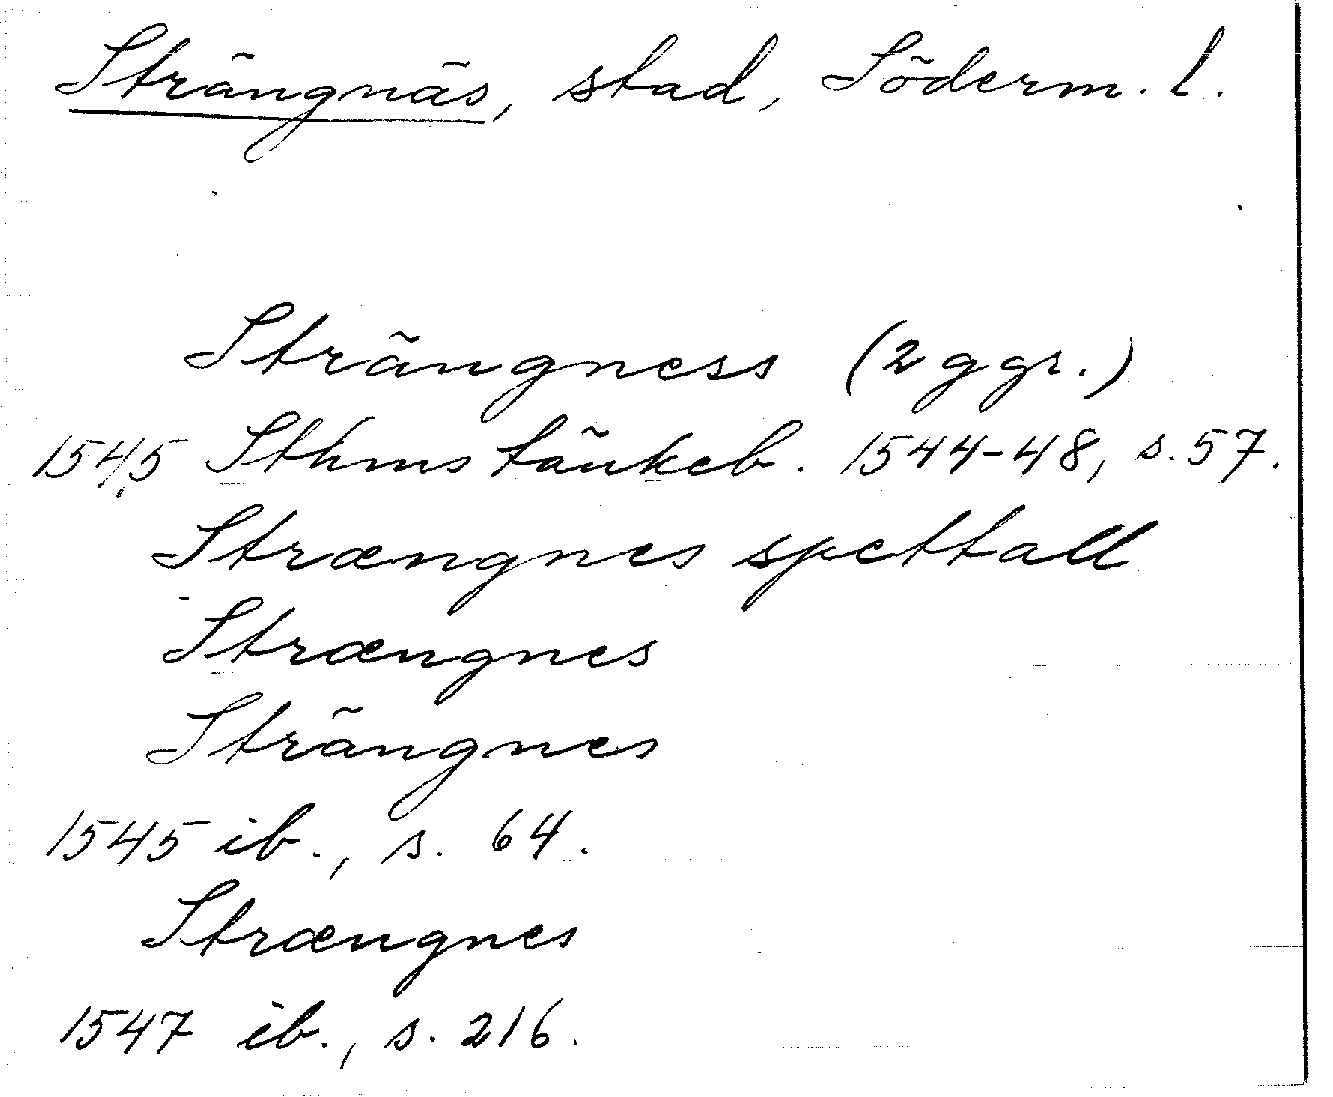 Strängnäs, stad, Söderm. l.
Strängness (2 ggr.)
1545 Sthms tänkeb. 1544-48, s. 57.
Strængnes spettall
Strængnes
Strängnes
1545 ib., s. 64.
Strængnes
1547 ib., s. 216.